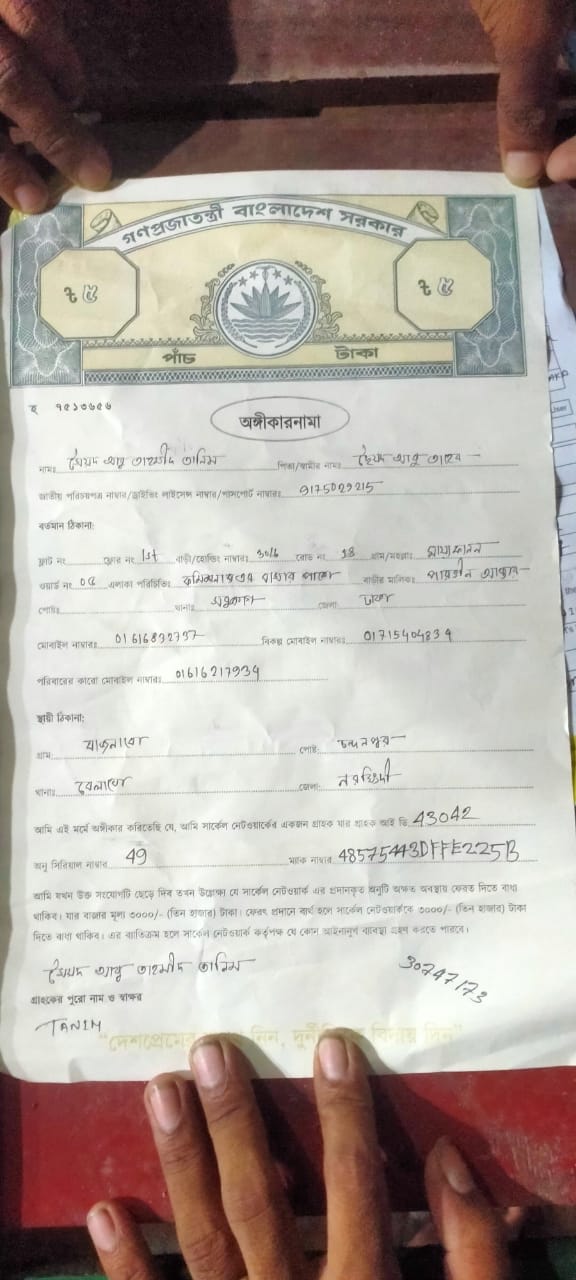 গণপ্রজাতন্ত্রী বাংলাদেশ সরকার
৳ ৫ ৳ ৫
পাঁচ টাকা
হ ৭৫১৩৬৫৬
অঙ্গীকারনামা
নামঃ সৈয়দ আবু তাহমীদ তানিম পিতা/স্বামীর নামঃ ছৈয়দ আবু তাহের
জাতীয় পরিচয়পত্র নাম্বার/ড্রাইভিং লাইসেন্স নাম্বার/পাসপোর্ট নাম্বারঃ 9175029215
বর্তমান ঠিকানা:
ফ্ল্যাট নং ফ্লোর নং 1st বাড়ী/হোল্ডিং নাম্বারঃ 30/6 রোড নং 18 গ্রাম/মহল্লাঃ
ওয়ার্ড নং 05 এলাকা পরিচিতিঃ বাজার বাড়ীর মালিকঃ পারভীন আক্তার
পোষ্টঃ থানাঃ জেলা ঢাকা
মোবাইল নাম্বারঃ 01616832737 বিকল্প মোবাইল নাম্বারঃ 01715404834
পরিবারের কারো মোবাইল নাম্বারঃ 01616217934
স্থায়ী ঠিকানা:
গ্রামঃ বাজনাবো পোষ্ট: চন্দনপুর
থানাঃ বেলাবো জেলা: নরসিংদী
আমি এই মর্মে অঙ্গীকার করিতেছি যে, আমি সার্কেল নেটওয়ার্কের একজন গ্রাহক যার গ্রাহক আই ডি 43042
অনু সিরিয়াল নাম্বার 49 ম্যাক নাম্বার 48575443DFFE225B
আমি যখন উক্ত সংযোগটি ছেড়ে দিব তখন উল্লেখ্য যে সার্কেল নেটওয়ার্ক এর প্রদানকৃত অনুটি অক্ষত অবস্থায় ফেরত দিতে বাধ্য
থাকিব। যার বাজার মূল্য ৩০০০/- (তিন হাজার) টাকা। ফেরৎ প্রদানে ব্যর্থ হলে সার্কেল নেটওয়ার্ককে ৩০০০/- (তিন হাজার) টাকা
দিতে বাধ্য থাকিব। এর ব্যতিক্রম হলে সার্কেল নেটওয়ার্ক কর্তৃপক্ষ যে কোন আইনানুগ ব্যবস্থা গ্রহণ করতে পারবে।
সৈয়দ আবু তাহমীদ তানিম
30747173
গ্রাহকের পুরো নাম ও স্বাক্ষর
TANIM
“দেশপ্রেমের নিন, দুর্নীতিকে বিদায় দিন”